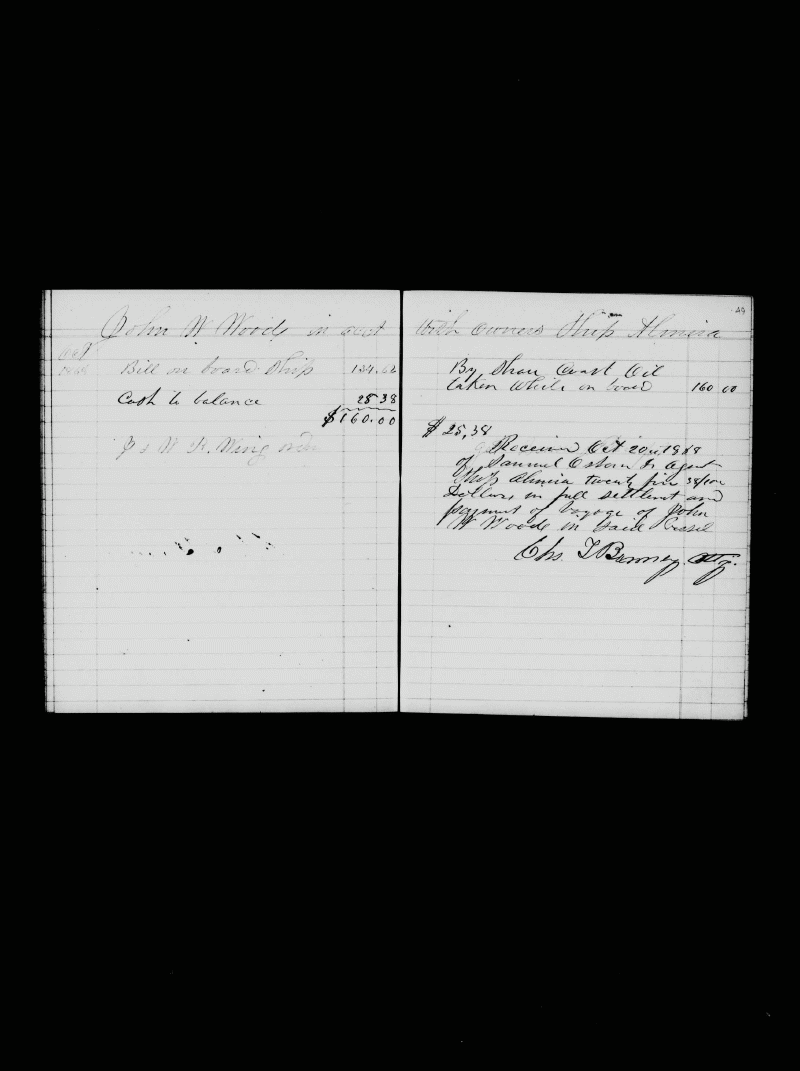 49
John W Woods in acct
Oct
1868 Bill on board Ship 134.62
Cash to balance 25 38
$160.00
J & W R. Wing order
With owners Ship Almira
By Share Coast Oil
taken While on board 160 00
$25,38
Received Oct 20th 1868
of Samuel Osborn Jr Agent
Ship Almira twenty five 38/100
Dollars in full settlemt and
payment of Voyage of John
W Woods in said Vessel
Chs. T Bonney Atty.